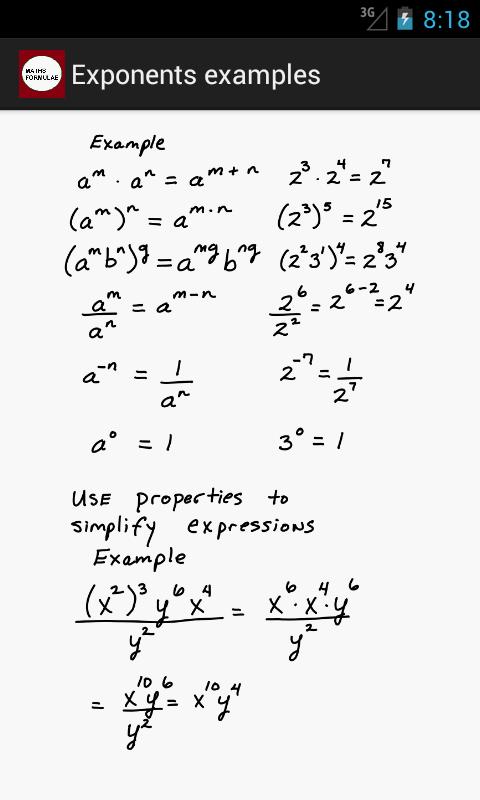 3G 8:18
MATHS
FORMULAE
Exponents examples
Example
aᵐ · aⁿ = aᵐ⁺ⁿ 2³ · 2⁴ = 2⁷
(aᵐ)ⁿ = aᵐ·ⁿ (2³)⁵ = 2¹⁵
(aᵐbⁿ)^g = a^mg b^ng (2²3¹)⁴ = 2⁸3⁴
aᵐ/aⁿ = aᵐ⁻ⁿ 2⁶/2² = 2⁶⁻² = 2⁴
a⁻ⁿ = 1/aⁿ 2⁻⁷ = 1/2⁷
a⁰ = 1 3⁰ = 1
USE properties to
simplify expressions
Example
(x²)³y⁶x⁴/y² = x⁶·x⁴·y⁶/y²
= x¹⁰y⁶/y² = x¹⁰y⁴